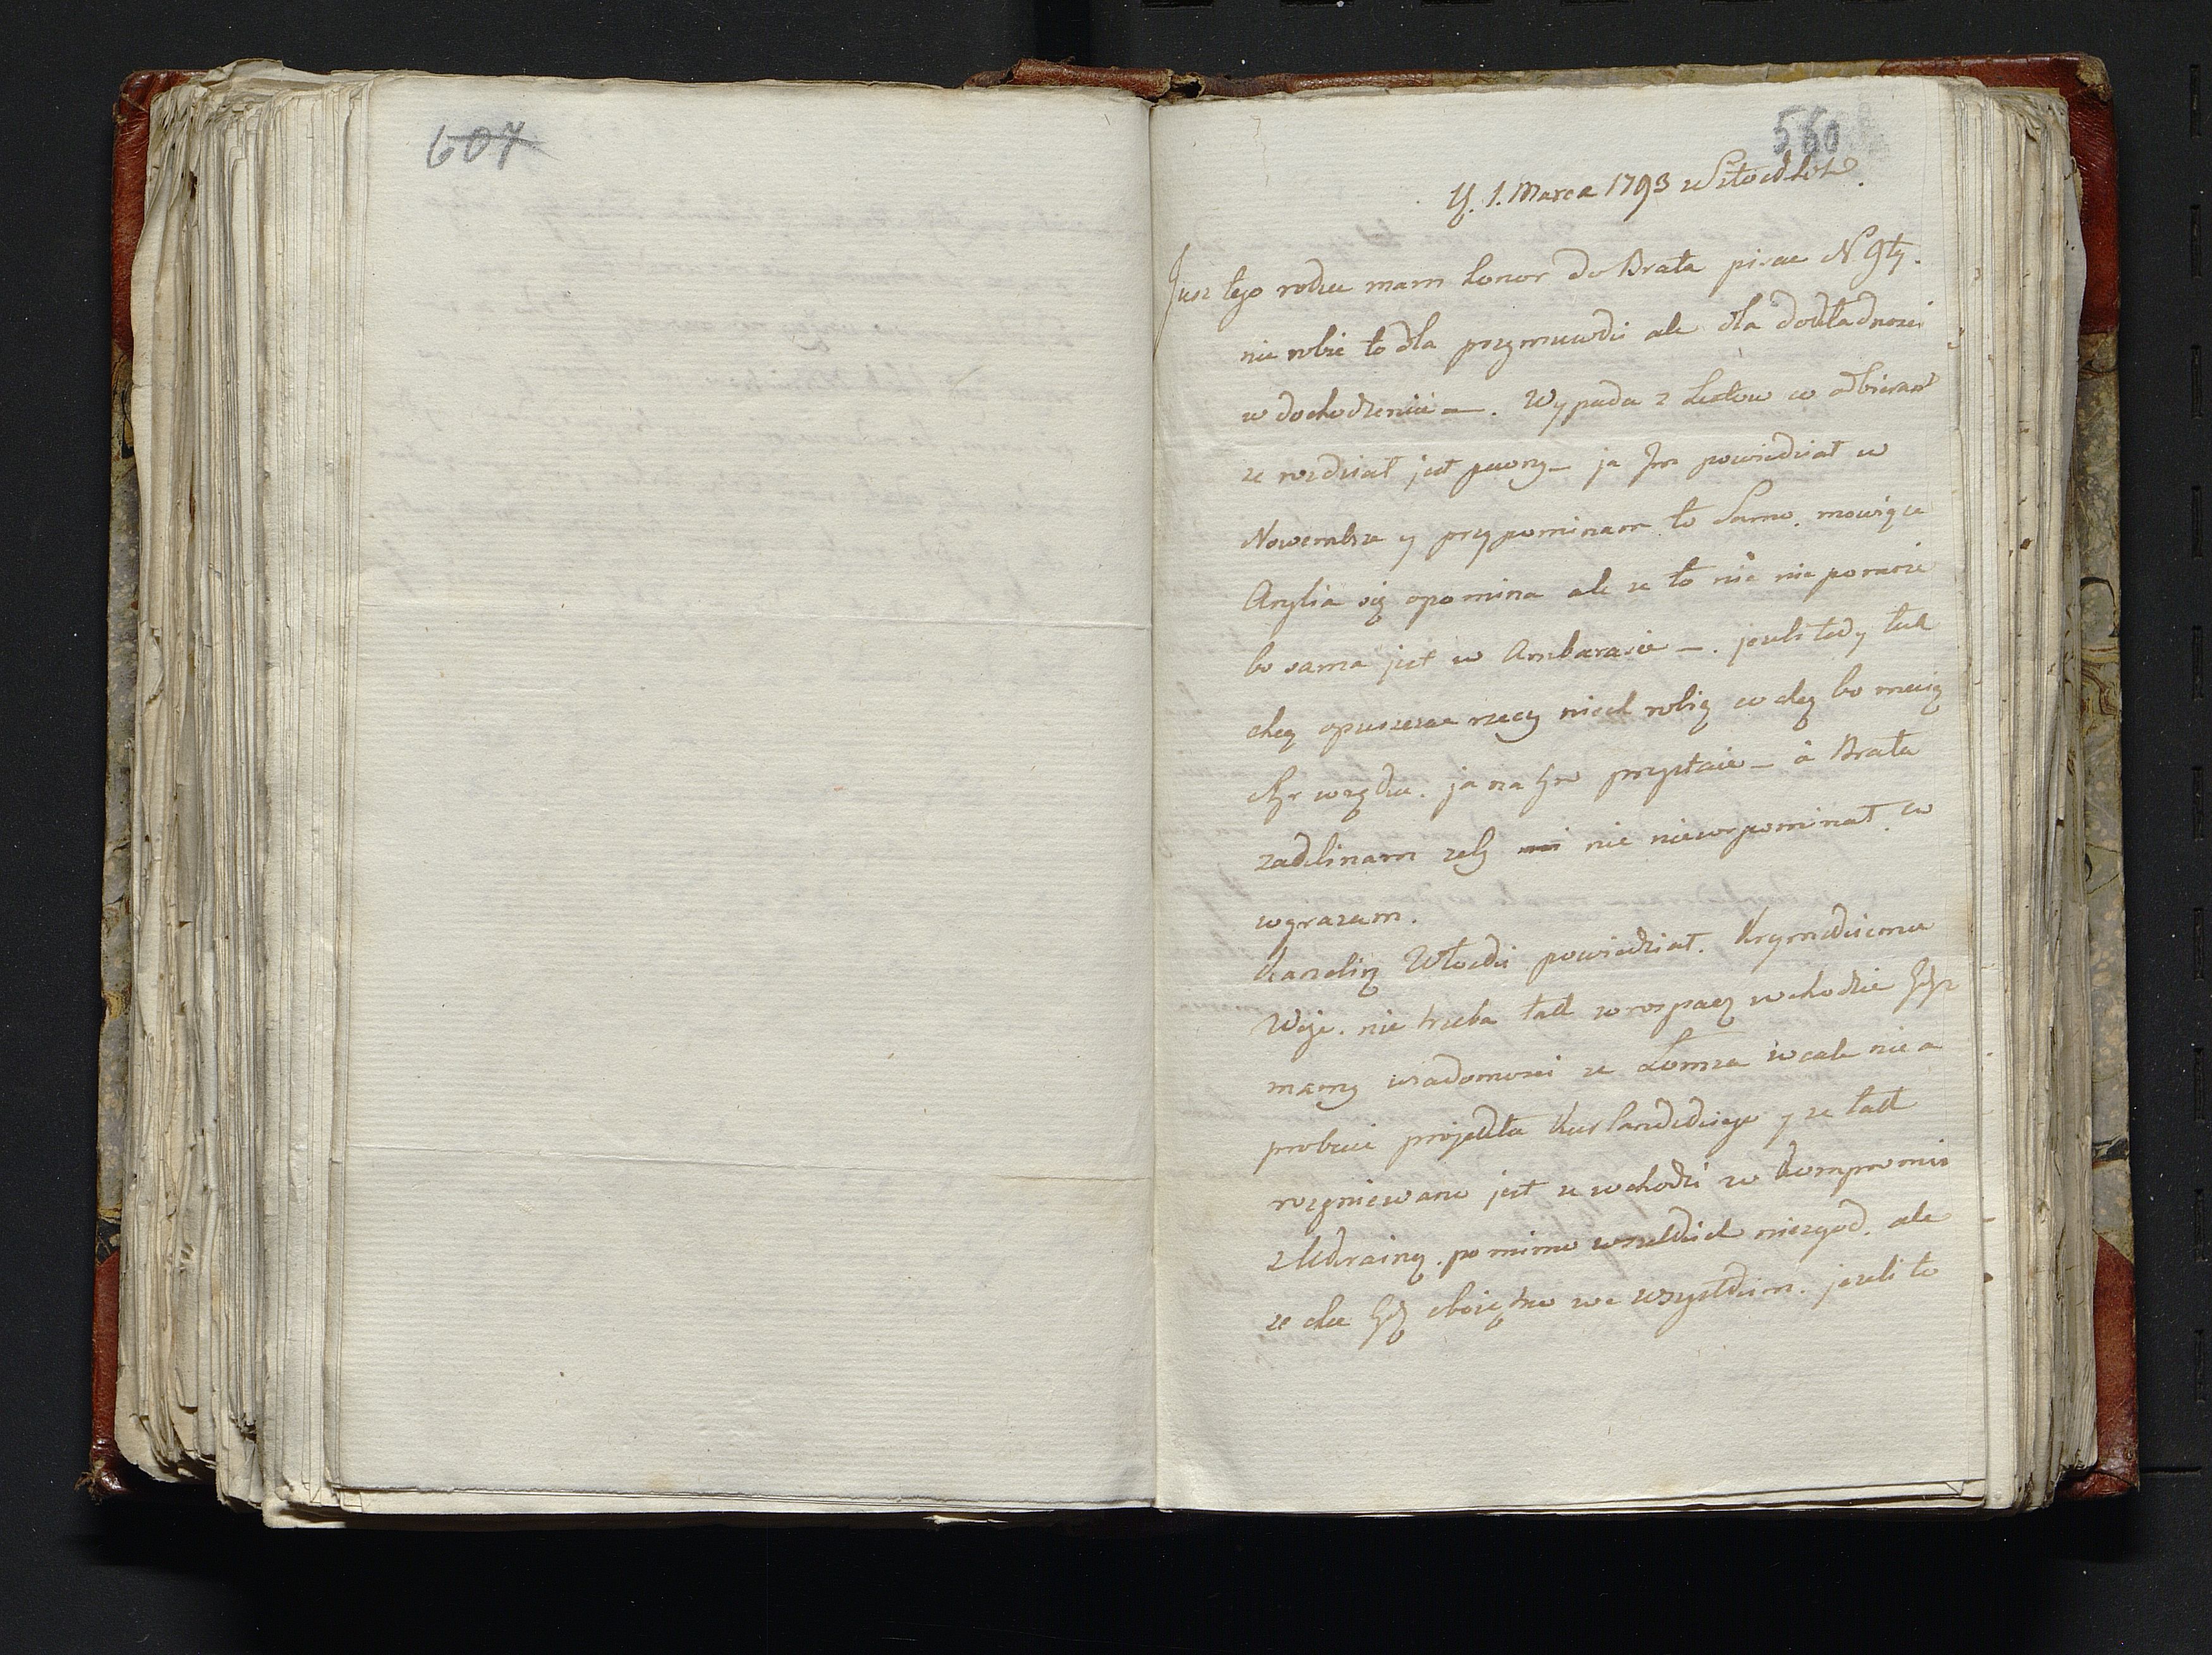 607
560
1. Marca 1793 w Sztockhol.
Jusz tego roku mam honor do Brata pisac N 9ty.
nie robie to dla przymuwki ale dla dokładnosci
w dochodzeniu —. Wypada z Listow co odbierał
ze rozdział jest pewny — ja Im powiedział w
Nowembrze y przypominam to Samo. mowią ze
Anglia się opomina ale ze to nic nie pomoze
bo sama jest w Ambarasie —. jezeli tedy tak
chcą opuszczac rzeczy niech robią co chcą bo maią
wządu. ja na przystaie — à Brata
zaklinam zeby nic niewspominał. co
wyrazam.
Kanclirz Włocki powiedział. Krymskiemu
Woje. nie trzeba tak w rospacz wchodzic gdysz
mamy wiadomosci ze Łomza wcale nie a
probuie projektu Kurlandskiego y ze tak
rozgniewana jest ze wchodzi w Kompromis
z Ukrainą. pomimo wszelkich niezgod. ale
ze chce bydz oboiętna we wszystkim. jezeli to